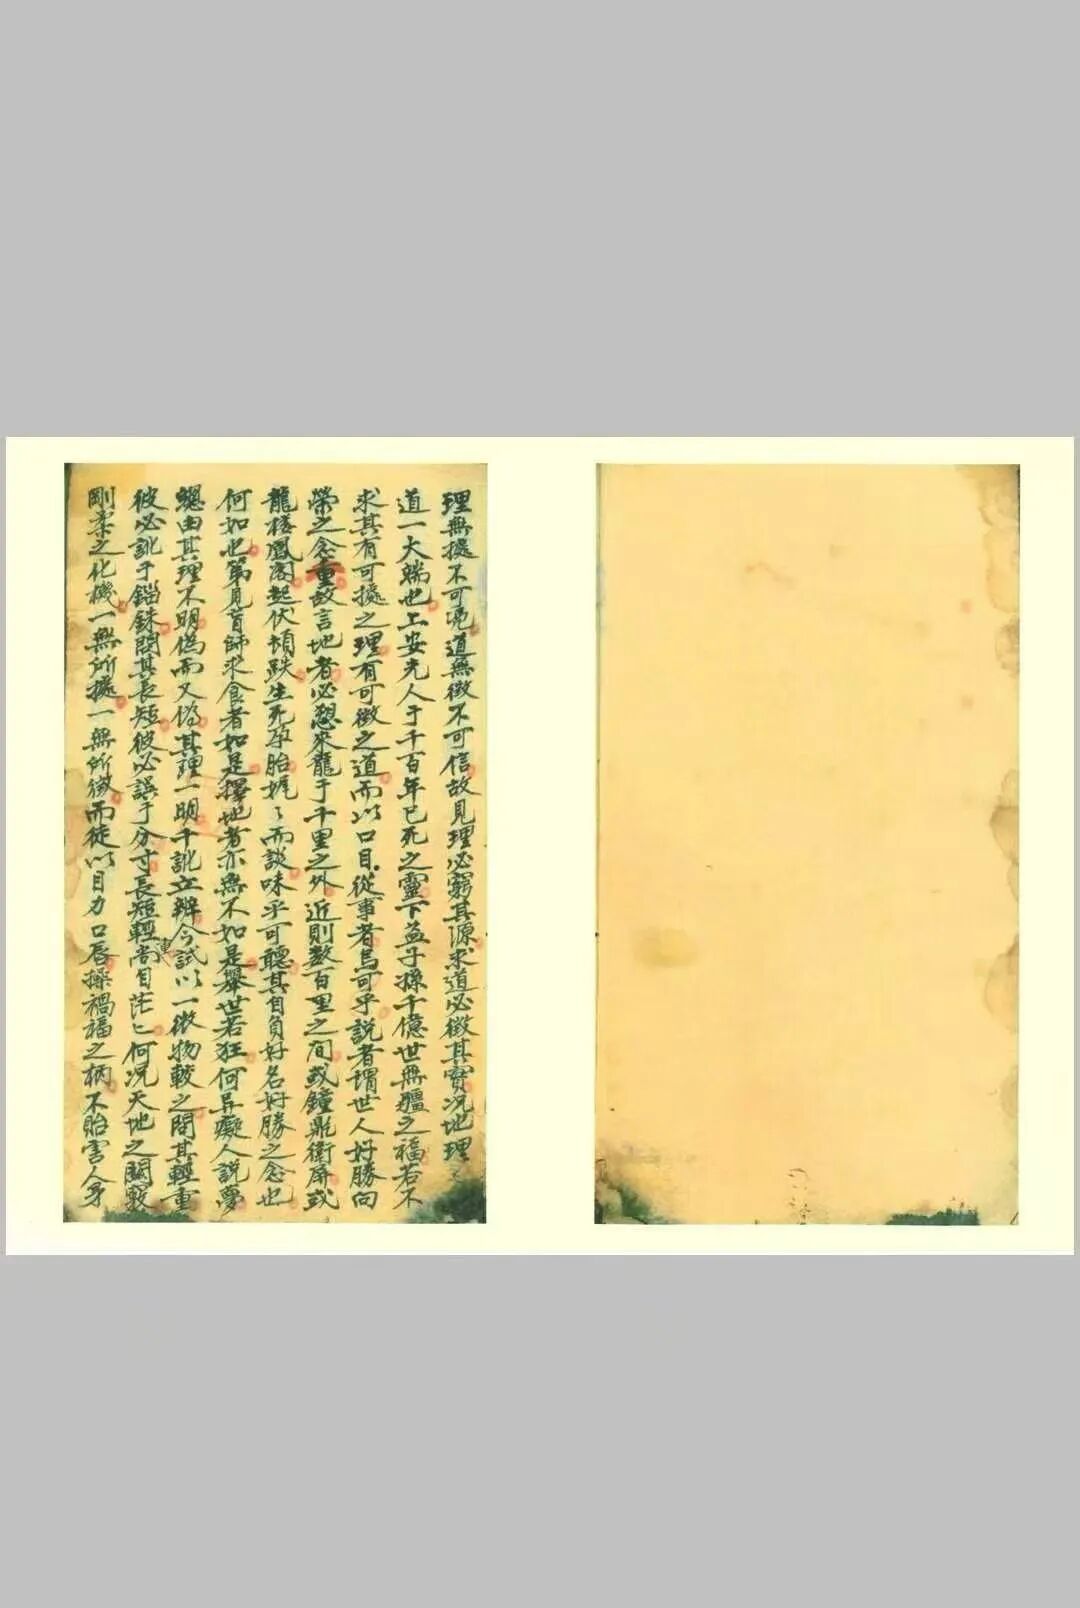 理無據不可憑道無徵不可信故見理必窮其源求道必徵其實况地理
道一大端也上安先人于千百年已死之靈下益子孫千億世無疆之福若不
求其有可據之理有可徵之道而以口目從事者烏可乎説者謂世人好勝向
榮之念重故言地者必懇來龍于千里之外近則数百里之间或鐘鼎衛屏或
龍楼鳳阁起伏頓跌生死孕胎娓々而談味乎可聽其自負好名好勝之念也
何如也第見盲師求食者如是擇地者亦無不如是舉世若狂何异癡人説夢
總由其理不明偽而又偽其理一明千訛立辨今試以一微物較之問其輕重
彼必訛于錙銖問其長短彼必誤于分寸長短輕重尚自茫〻何况天地之闔闢
剛柔之化機一無所據一無所徵而徒以目力口唇操禍福之柄不貽害人身